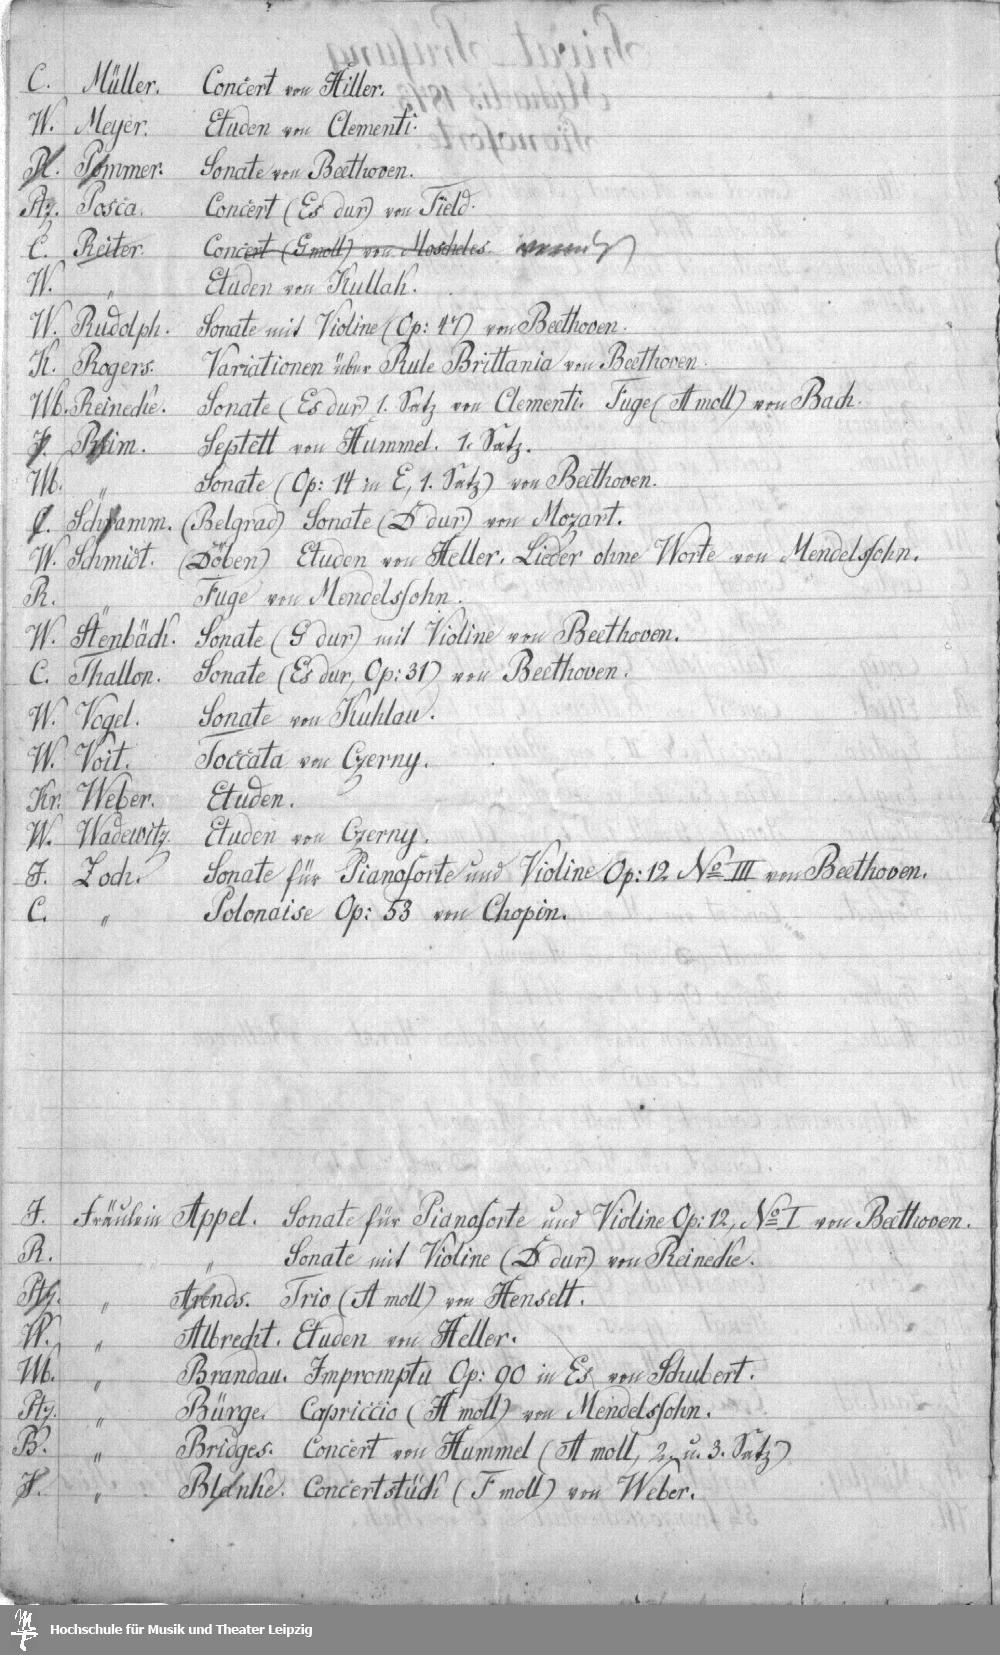 C. Müller. Concert von Hiller.
W. Meyer. Etuden von Clementi.
R. Pommer. Sonate von Beethoven.
Ptz. Posca. Concert (Es dur) von Field.
C. Reiter. Concert (G moll) von Moscheles.
W. " Etuden von Kullak.
W. Rudolph. Sonate mit Violine (Op: 47) von Beethoven.
K. Rogers. Variationen über Rule Brittania von Beethoven.
Wb. Reinecke. Sonate (Es dur) 1. Satz von Clementi. Fuge (A moll) von Bach.
J. Reim. Septett von Hummel. 1. Satz.
Wb. " Sonate (Op: 14 in E, 1. Satz) von Beethoven.
C. Schramm. (Belgrad) Sonate (D dur) von Mozart.
W. Schmidt. (Döben) Etuden von Heller. Lieder ohne Worte von Mendelssohn.
R. " Fuge von Mendelssohn.
W. Stenbäck. Sonate (G dur) mit Violine von Beethoven.
C. Thallon. Sonate (Es dur, Op: 31) von Beethoven.
W. Vogel. Sonate von Kuhlau.
W. Voit. Toccata von Czerny.
Kr. Weber. Etuden.
W. Wadewitz. Etuden von Czerny.
J. Zoch. Sonate für Pianoforte und Violine Op: 12 No III von Beethoven.
C. " Polonaise Op: 53 von Chopin.
J. Fräulein Appel. Sonate für Pianoforte und Violine Op: 12, No I von Beethoven.
R. " Sonate mit Violine (D dur) von Reinecke.
Ptz. " Arends. Trio (A moll) von Henselt.
W. " Albrecht. Etuden von Heller.
Wb. " Brandau. Impromptu Op: 90 in Es von Schubert.
Ptz. " Bürge. Capriccio (A moll) von Mendelssohn.
B. " Bridges. Concert von Hummel (A moll, 2. u. 3. Satz)
J. " Blanke. Concertstück (F moll) von Weber.
Hochschule für Musik und Theater Leipzig